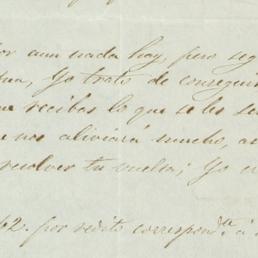 or aun nada hay, pero seg
tua, Yo trato de consegui
recibas lo que se les
nos aliviará mucho, a
resolver tu vuelta; Yo
62. por redito correspond.te á